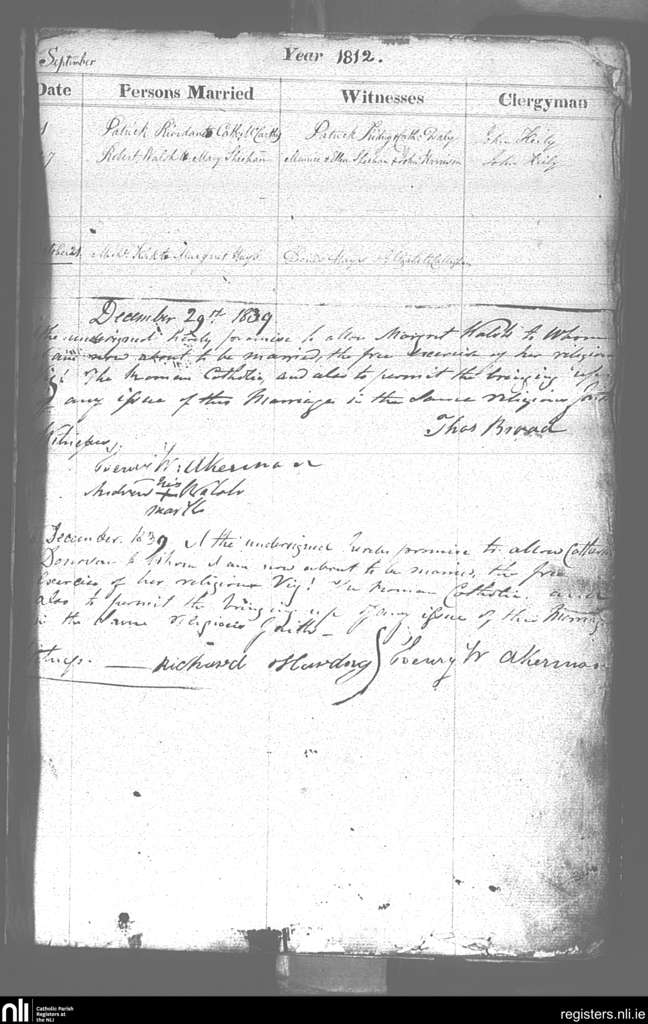 September
Year 1812.
Date Persons Married Witnesses Clergyman
Patrick Riordan to Cath. McCarthy Patrick & Cath. Daly John Keily
7 Robert Walsh to Mary Sheehan Maurice & Ellen Sheehan & John Harrison John Keily
tober 21. Mich. Kirk to Margret Hays
December 29st 1839
the undersigned hereby promise to allow Margret Walsh to Whom
am now about to be married, the free exercise of her religion
Viz! The Roman Catholic, and also to permit the bringing up
of any issue of this Marriage in the Same religious faith
Thos Broad
Witnesses,
Henry W. Akerman
Andrew his + Walsh
mark
December. 1839 I the undersigned hereby promise to allow Catherine
Donovan to Whom I am now about to be married, the free
Exercise of her religion Viz! The Roman Catholic. and
also to permit the bringing up of any issue of this Marriage
in the Same religious faith -
Witness. — Richard Harding } Henry W Akerman
nli Catholic Parish
Registers at
the NLI
registers.nli.ie